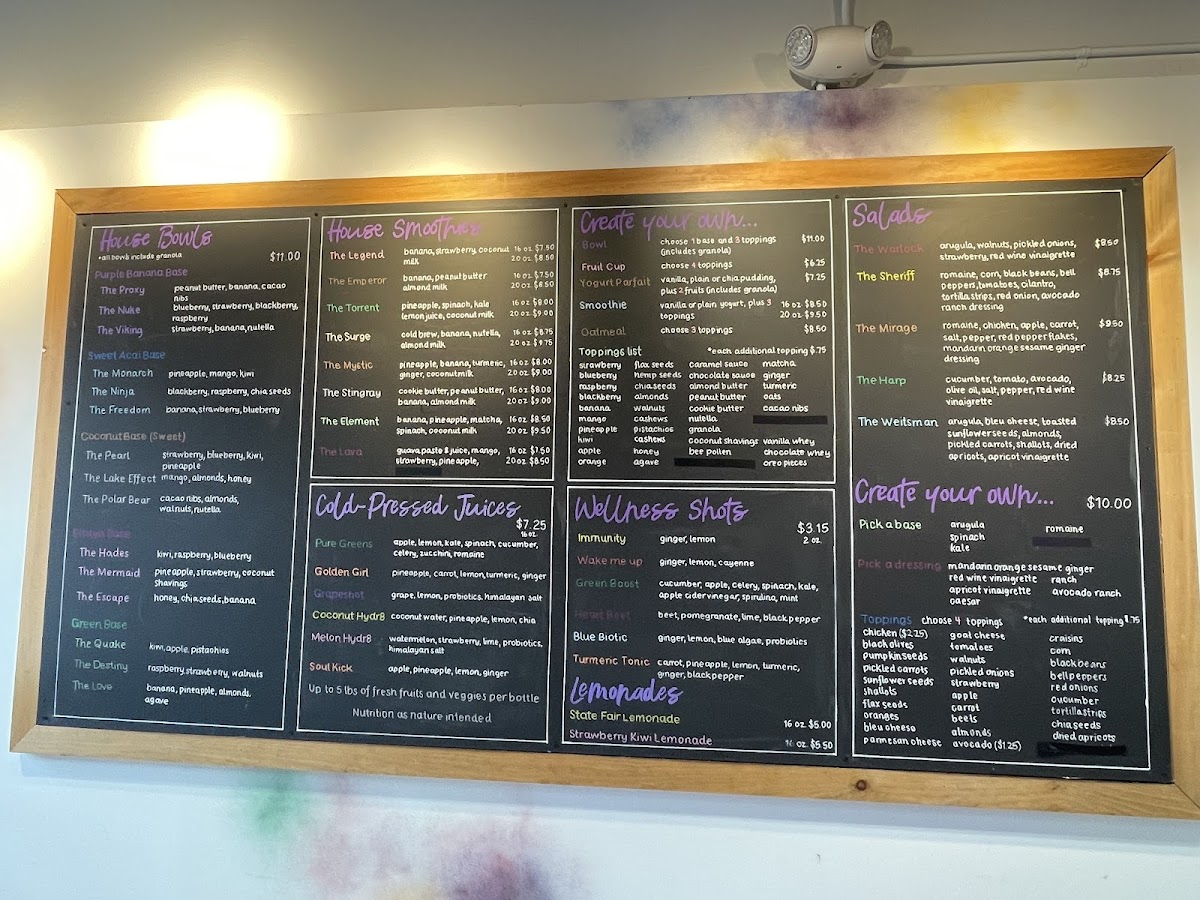 House Bowls
*all bowls include granola $11.00
Purple Banana Base
The Proxy peanut butter, banana, cacao
nibs
The Nuke blueberry, strawberry, blackberry,
raspberry
The Viking strawberry, banana, nutella
Sweet Acai Base
The Monarch pineapple, mango, kiwi
The Ninja blackberry, raspberry, chia seeds
The Freedom banana, strawberry, blueberry
Coconut Base (Sweet)
The Pearl strawberry, blueberry, kiwi,
pineapple
The Lake Effect mango, almonds, honey
The Polar Bear cacao nibs, almonds,
walnuts, nutella
Base
The Hades kiwi, raspberry, blueberry
The Mermaid pineapple, strawberry, coconut
shavings
The Escape honey, chia seeds, banana
Green Base
The Quake kiwi, apple, pistachios
The Destiny raspberry, strawberry, walnuts
The Love banana, pineapple, almonds,
agave
House Smoothies
The Legend banana, strawberry, coconut 16 oz $7.50
milk 20 oz $8.50
The Emperor banana, peanut butter 16 oz $7.50
almond milk 20 oz $8.50
The Torrent pineapple, spinach, kale 16 oz $8.00
lemon juice, coconut milk 20 oz $9.00
The Surge cold brew, banana, nutella, 16 oz $8.75
almond milk 20 oz $9.75
The Mystic pineapple, banana, turmeric, 16 oz $8.00
ginger, coconut milk 20 oz $9.00
The Stingray cookie butter, peanut butter, 16 oz $8.00
banana, almond milk 20 oz $9.00
The Element banana, pineapple, matcha, 16 oz $8.50
spinach, coconut milk 20 oz $9.50
The Lava guava paste & juice, mango, 16 oz $7.50
strawberry, pineapple, 20 oz $8.50
Cold-Pressed Juices
$7.25
16 oz.
Pure Greens apple, lemon, kale, spinach, cucumber,
celery, zucchini, romaine
Golden Girl pineapple, carrot, lemon, turmeric, ginger
Grapeshot grape, lemon, probiotics, himalayan salt
Coconut Hydr8 coconut water, pineapple, lemon, chia
Melon Hydr8 watermelon, strawberry, lime, probiotics,
himalayan salt
Soul Kick apple, pineapple, lemon, ginger
Up to 5 lbs of fresh fruits and veggies per bottle
Nutrition as nature intended
Create your own...
Bowl choose 1 base and 3 toppings $11.00
(includes granola)
Fruit Cup choose 4 toppings $6.25
Yogurt Parfait vanilla, plain or chia pudding, $7.25
plus 2 fruits (includes granola)
Smoothie vanilla or plain yogurt, plus 3 16 oz $8.50
toppings 20 oz $9.50
Oatmeal choose 3 toppings $8.50
Toppings list *each additional topping $.75
strawberry flax seeds caramel sauce matcha
blueberry hemp seeds chocolate sauce ginger
raspberry chia seeds almond butter turmeric
blackberry almonds peanut butter oats
banana walnuts cookie butter cacao nibs
mango cashews nutella
pineapple pistachios granola
kiwi cashews coconut shavings vanilla whey
apple honey bee pollen chocolate whey
orange agave oreo pieces
Wellness Shots
$3.15
2 oz.
Immunity ginger, lemon
Wake me up ginger, lemon, cayenne
Green Boost cucumber, apple, celery, spinach, kale,
apple cider vinegar, spirulina, mint
Heart Beet beet, pomegranate, lime, black pepper
Blue Biotic ginger, lemon, blue algae, probiotics
Turmeric Tonic carrot, pineapple, lemon, turmeric,
ginger, black pepper
Lemonades
State Fair Lemonade 16 oz $5.00
Strawberry Kiwi Lemonade 16 oz $5.50
Salads
The Warlock arugula, walnuts, pickled onions, $8.50
strawberry, red wine vinaigrette
The Sheriff romaine, corn, black beans, bell $8.75
peppers, tomatoes, cilantro,
tortilla strips, red onion, avocado
ranch dressing
The Mirage romaine, chicken, apple, carrot, $9.50
salt, pepper, red pepper flakes,
mandarin orange sesame ginger
dressing
The Harp cucumber, tomato, avocado, $8.25
olive oil, salt, pepper, red wine
vinaigrette
The Weitsman arugula, bleu cheese, toasted $8.50
sunflower seeds, almonds,
pickled carrots, shallots, dried
apricots, apricot vinaigrette
Create your own... $10.00
Pick a base arugula romaine
spinach
kale
Pick a dressing mandarin orange sesame ginger
red wine vinaigrette ranch
apricot vinaigrette avocado ranch
caesar
Toppings choose 4 toppings *each additional topping $.75
chicken ($2.25) goat cheese craisins
black olives tomatoes corn
pumpkin seeds walnuts black beans
pickled carrots pickled onions bell peppers
sunflower seeds strawberry red onions
shallots apple cucumber
flax seeds carrot tortilla strips
oranges beets chia seeds
bleu cheese almonds dried apricots
parmesan cheese avocado ($1.25)